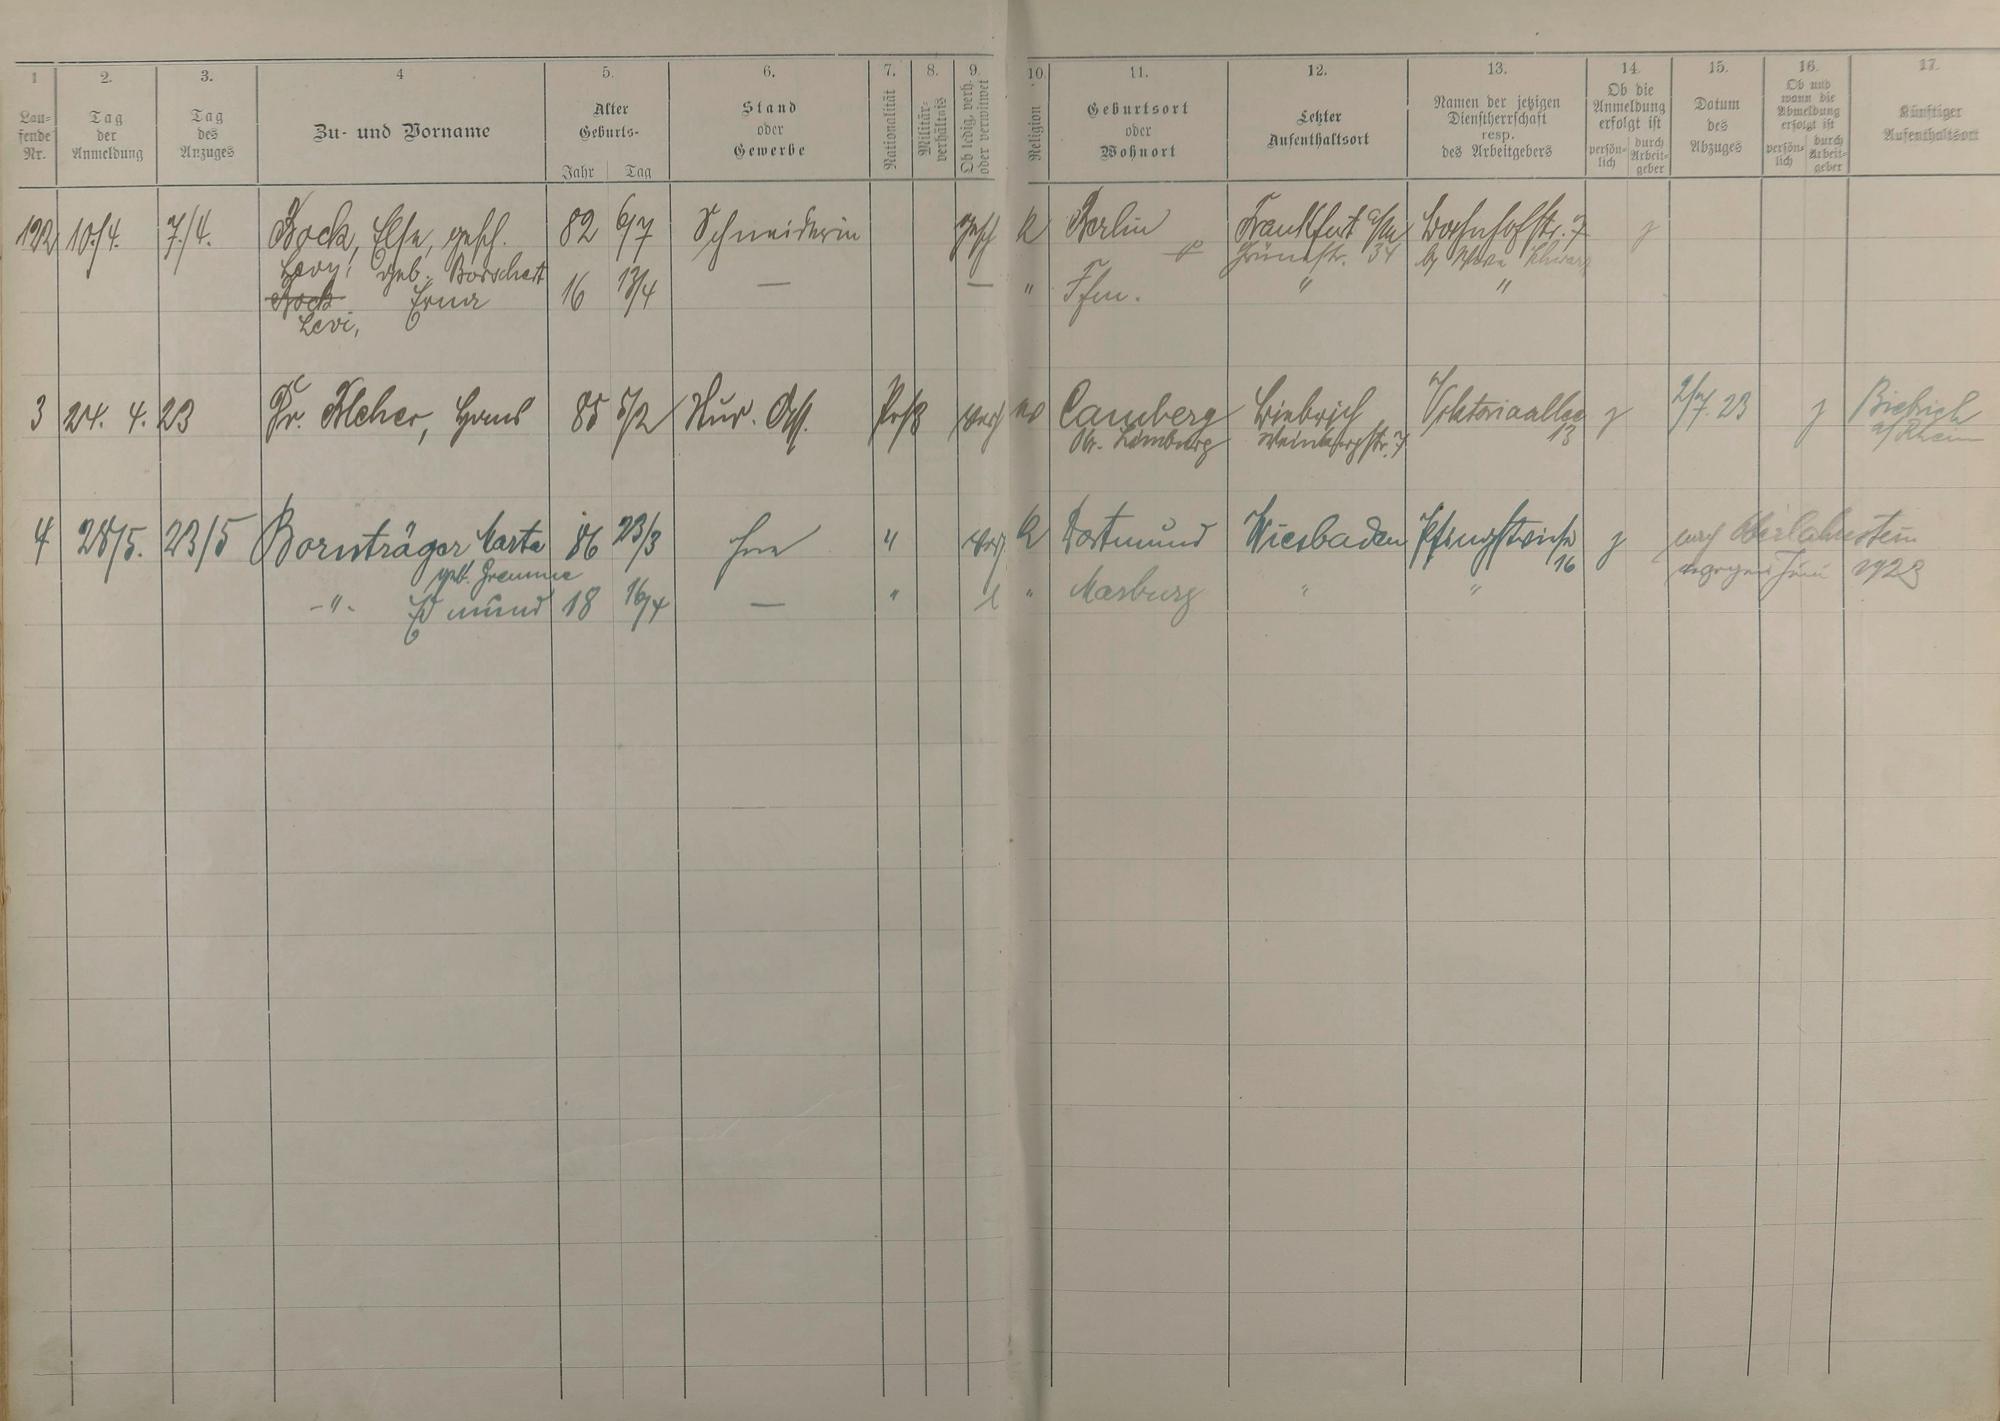 1 2. 3. 4 5. 6. 7. 8. 9. 10. 11. 12. 13. 14. 15. 16. 17.
Lau-
fende
Nr.
Tag
der
Anmeldung
Tag
des
Anzuges
Zu- und Vorname
Alter
Geburts-
Jahr Tag
Stand
oder
Gewerbe
Nationalität
Militär-
verhältnis
Ob ledig, verh.
oder verwitwet
Religion
Geburtsort
oder
Wohnort
Letzter
Aufenthaltsort
Namen der jetzigen
Dienstherrschaft
resp.
des Arbeitgebers
Ob die
Anmeldung
erfolgt ist
persön-
lich
durch
Arbeit-
geber
Datum
des
Abzuges
Ob und
wann die
Abmeldung
erfolgt ist
persön-
lich
durch
Arbeit-
geber
Künftiger
Aufenthaltsort
122 10./4. 7./4. Bock, Else, gesch. 82 6/7 Schneiderin gesch K Berlin Frankfurt a/M Bahnhofstr. 7
Levy, geb. Borschert Grünestr. 34 by
Bock Erna 16 13/4 — — " Ffm. " "
Levi,
3 24. 4. 23 Dr. Hans 85 5/2 verh Camberg Biebrich Viktoriaallee j 2/7. 23 j Biebrich
Kr. Limburg Weinbergstr. 7 13 a/Rhein
4 28/5. 23/5 Bornträger Marta 86 23/3 " verh K Dortmund Wiesbaden Pfingstweide j nach Oberlahnstein
geb. Gremme 16 Juni 1923
-"- Edmund 18 16/4 — " l " Marburg " "